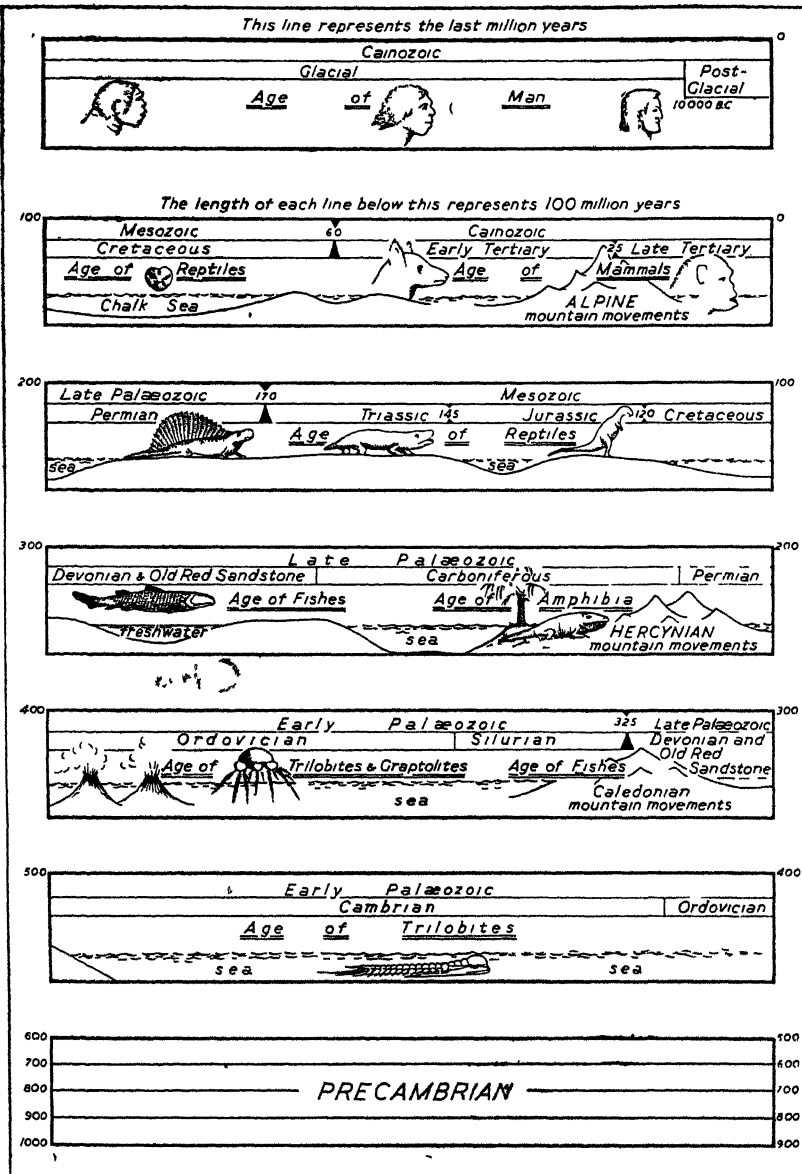 This line represents the last million years
1 0
Cainozoic
Glacial Post-Glacial
Age of Man 10 000 B.C
The length of each line below this represents 100 million years
100 0
Mesozoic 60 Cainozoic
Cretaceous Early Tertiary 25 Late Tertiary
Age of Reptiles Age of Mammals
Chalk Sea ALPINE
mountain movements
200 100
Late Palæozoic 170 Mesozoic
Permian Triassic 145 Jurassic 120 Cretaceous
Age of Reptiles
sea sea
300 200
Late Palæozoic
Devonian & Old Red Sandstone Carboniferous Permian
Age of Fishes Age of Amphibia
freshwater sea HERCYNIAN
mountain movements
400 300
Early Palæozoic 325 Late Palæozoic
Ordovician Silurian Devonian and
Old Red
Age of Trilobites & Graptolites Age of Fishes Sandstone
sea Caledonian
mountain movements
500 400
Early Palæozoic
Cambrian Ordovician
Age of Trilobites
sea sea
600 500
700 600
800 PRECAMBRIAN 700
900 800
1000 900